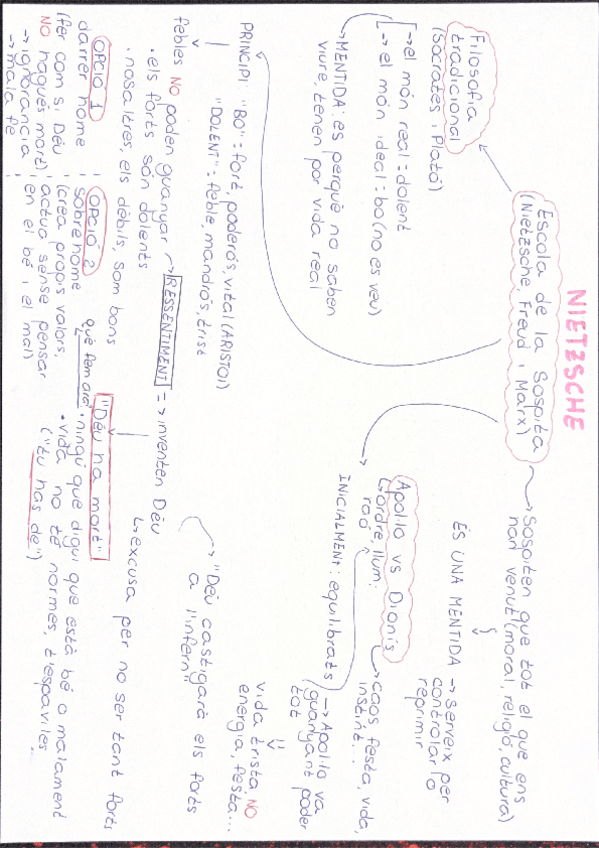 NIETZSCHE
Escola de la Sospita
(Nietzsche, Freud i Marx)
Sospiten que tot el que ens
han venut (moral, religió, cultura)
ÉS UNA MENTIDA → serveix per
controlar i o
reprimir
Filosofia
tradicional
(Sòcrates i Plató)
→ el món real = dolent
→ el món ideal = bo (no es veu)
→ MENTIDA: es perquè no saben
viure, tenen por vida real
Apol·lo vs Dionís
↳ ordre, llum,
raó
→ caos, festa, vida,
instint...
INICIALMENT: equilibrats
→ Apol·lo va
guanyant poder
tot
vida trista NO
energia, festa...
PRINCIPI: "BO" = fort, poderós, vital (ARISTOI)
"DOLENT" = feble, mandrós, trist
febles NO poden guanyar → RESSENTIMENT => inventen Déu
· els forts són dolents
· nosaltres, els dèbils, som bons
↳ excusa per no ser tant forts
→ "Déu castigarà els forts
a l'infern"
"Déu ha mort"
què fem ara
· ningú que digui que està bé o malament
· vida no té normes, t'espaviles
("tu has de")
OPCIÓ 1
darrer home
(fer com si Déu
NO hagués mort)
→ ignorància
→ mala fe
OPCIÓ 2
sobrehome
(crea propis valors,
actua sense pensar
en el bé i el mal)